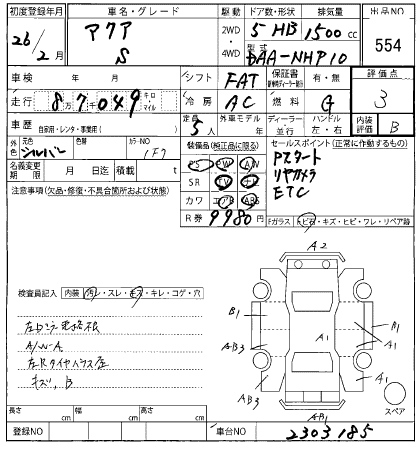 初度登録年月 車名・グレード 駆動 ドア数・形状 排気量 出品NO
26/2月 アクア S 2WD 4WD 5 HB 1500cc 554
型式 DAA-NHP10
車検 年 月 シフト FAT 保証書 有・無 評価点
走行 8万7千049 キロ マイル 冷房 AC 燃料 G 3
車歴 自家用・レンタ・事業用( ) 定員 5人 外車モデル 年 ディーラー 並行 ハンドル 左・右 内装評価 B
外色 元色 シルバー 色替 カラーNO 1F7 装備品(純正品に限る) セールスポイント(正常に作動するもの)
名義変更期限 月 日迄 積載 t PS PW AW Pスタート
注意事項(欠品・修復・不具合箇所および状態) SR TV ナビ リヤカメラ
カワ エアB ABS ETC
R券 9980円 Fガラス トビ石・キズ・ヒビ・ワレ・リペア跡
A2
検査員記入 内装 汚レ・スレ・キズ・キレ・コゲ・穴
B1 A1 A1
A/W-A AB3 A1
キズ、B AB3 A1
AB1 スペア
長さ cm 幅 cm 高さ cm
登録NO 車台NO 2303185